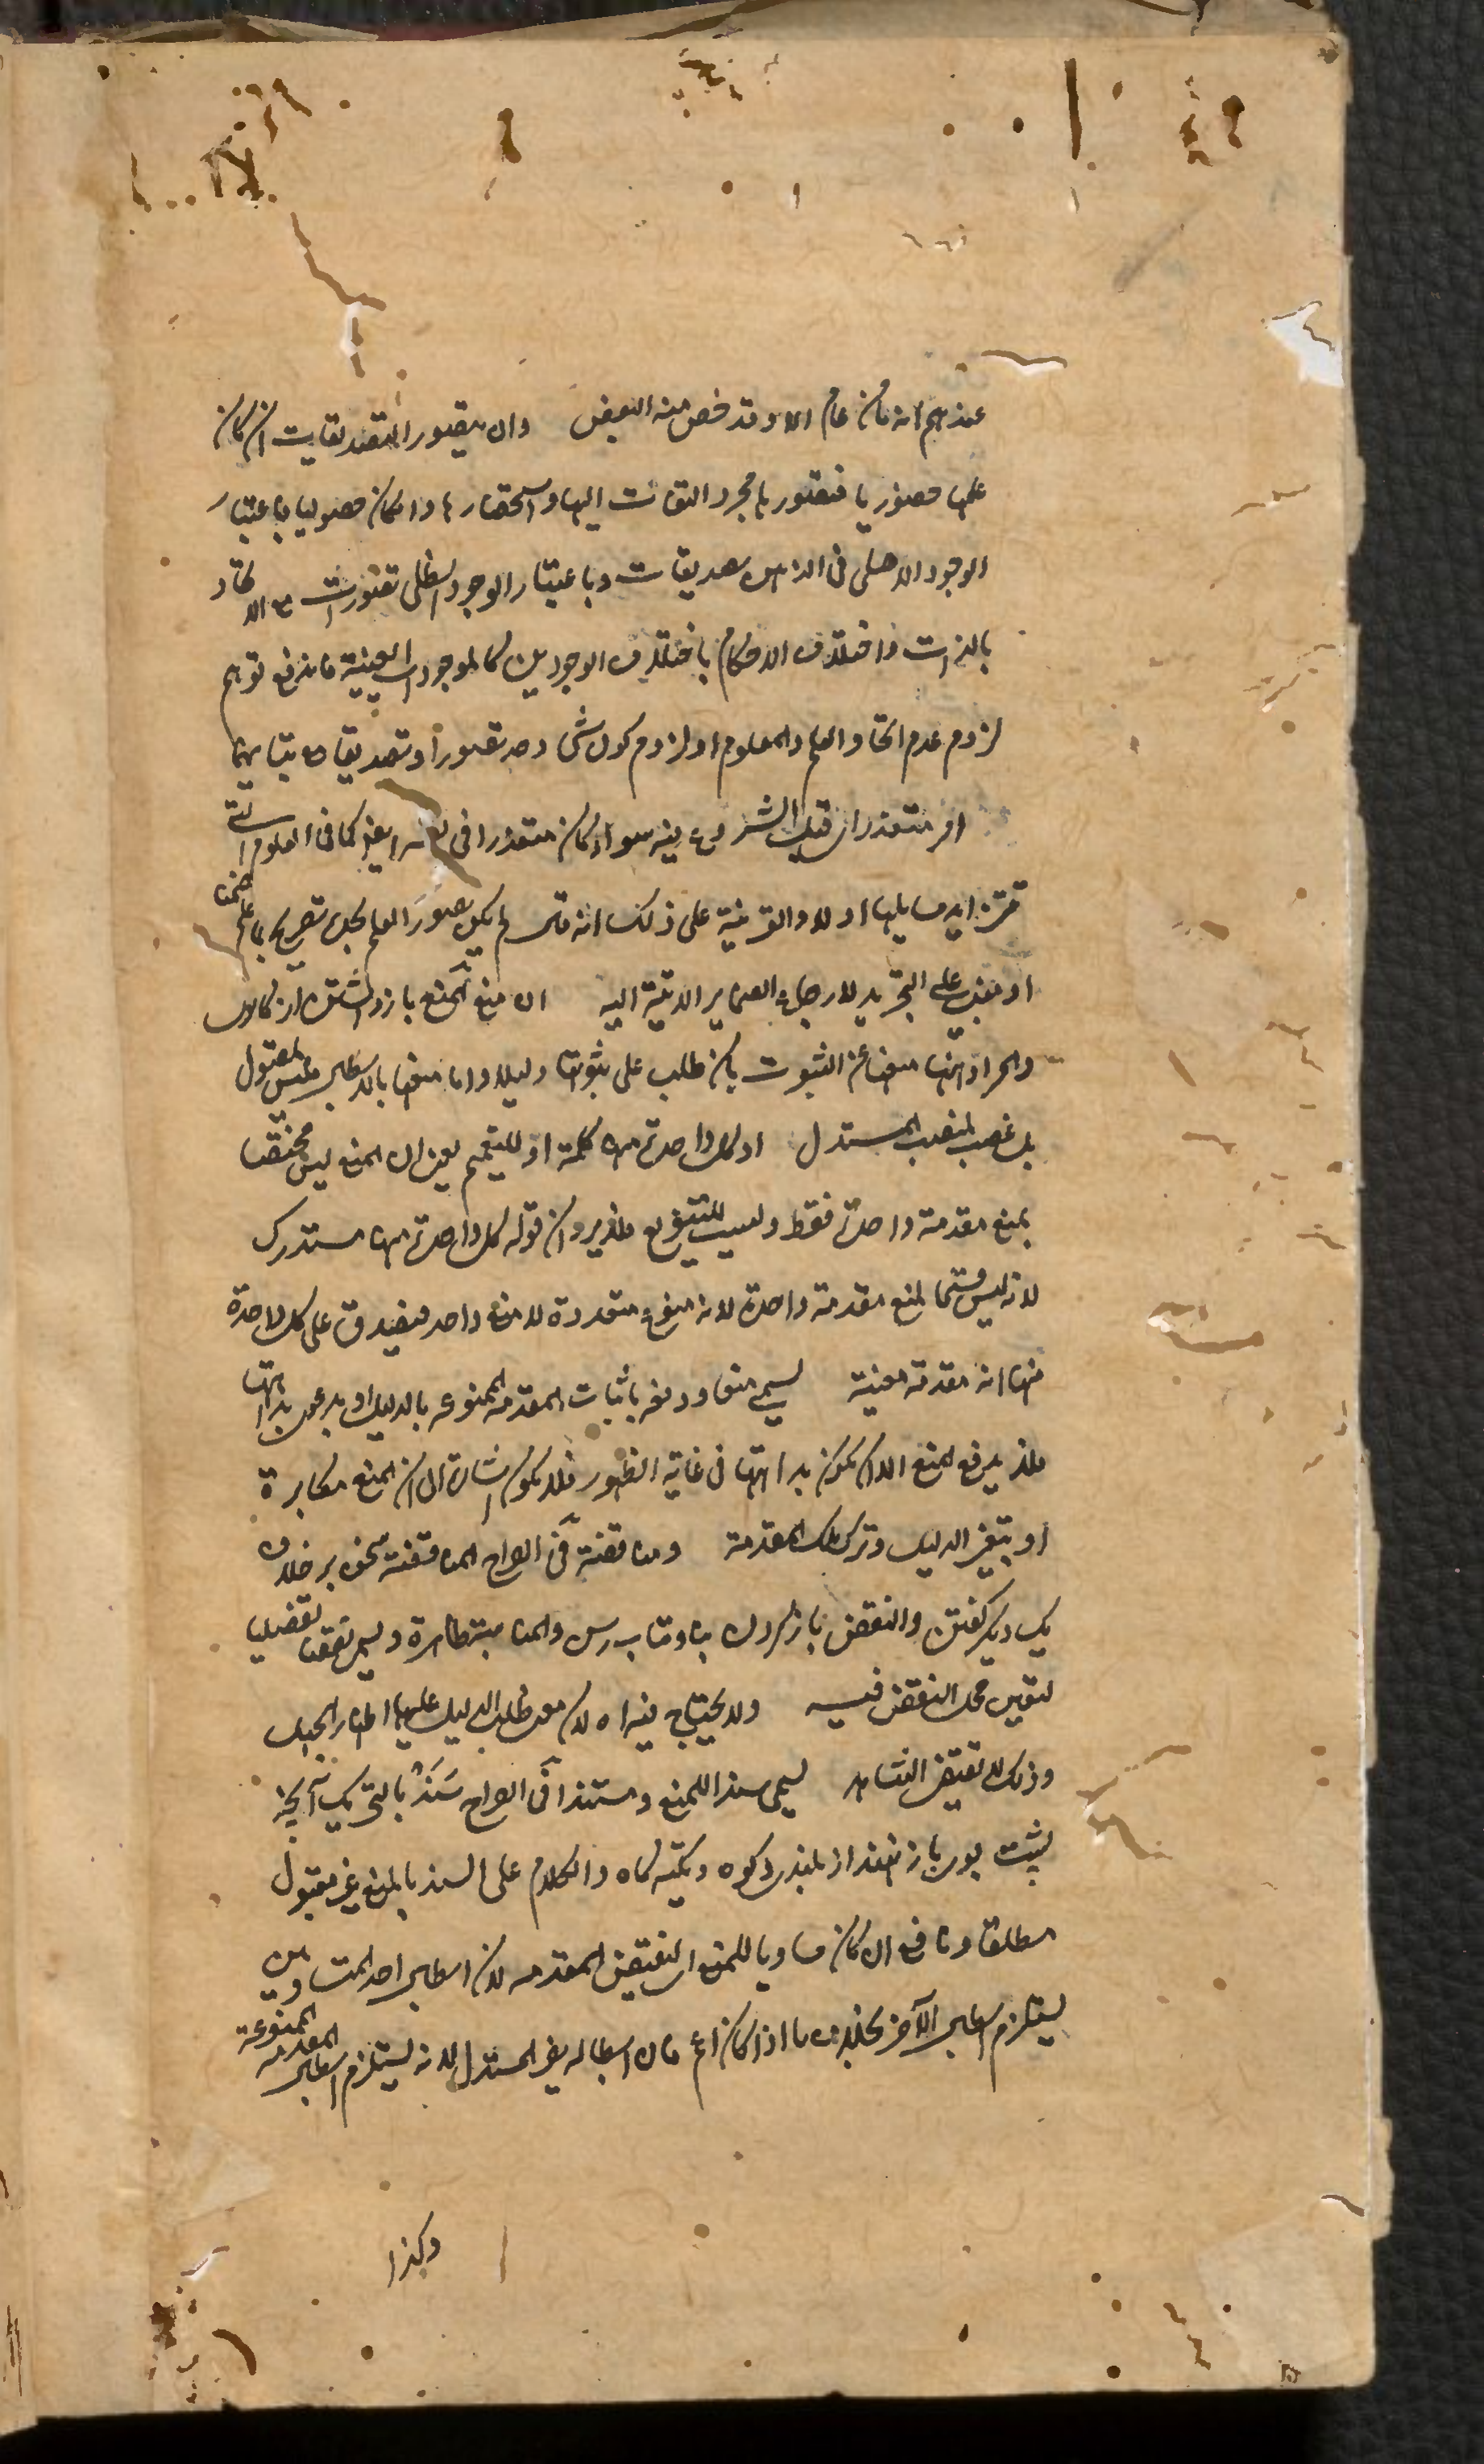 عندهم انه ما من عام الا وقد خص منه البعض وان تصور التصديقات ان كان
علمها حضوريا فتصورها مجرد التفات اليها واستحضارها وان كان حصوليا فباعتبار
الوجود الاصلي في الذهن تصديقات وباعتبار الوجود الظلي تصورات مع الاتحاد
بالذات واختلاف الاحكام باختلاف الوجودين كالموجودات العينية فاندفع توهم
لزوم عدم اتحاد العلم والمعلوم او لزوم كون شي واحد تصورا وتصديقا مع تباينهما
امر متعذر اي قبل الشروع فيه سواء كان متعذرا في نفسه ايضا كما في العلوم التي
تتزايد مسايلها او لا والقرينة على ذلك انه قال لم يكن تصور العلم بحده
او مبني على التجريد لارجاع الضماير الاتية اليه ان منع المنع باز داشتن از كاري
والمراد ههنا منعها عن الثبوت بان طلب على ثبوتها دليلا واما منعها بالدليل فليس بمقبول
بل غصب لمنصب المستدل او كل واحدة منها كلمة او للتعميم يعني ان المنع ليس مختصا
بمنع مقدمة واحدة فقط وليست للتنويع فلا يرد ان قوله كل واحدة منها مستدرك
لانه ليس قسيما لمنع مقدمة واحدة لانه منوع متعددة لا منع واحد فيصدق على كل واحدة
منها انه مقدمة معينة يسمى منعا ودفعه باثبات المقدمة الممنوعة بالدليل او بدعوى بداهتها
فلا يدفع المنع الا ان يكون بداهتها في غاية الظهور فلا يكون اشارة الى ان المنع مكابرة
او بتغير الدليل وترك تلك المقدمة ومناقضة في الصراح المناقضة سخن بر خلاف
يك ديكر كفتن والنقض باز كردن بنا وتاب رسن والمناسبة ظاهرة ويسمى نقضا تفصيليا
لتعين محل النقض فيه ولا يحتاج فيه اه لان معه طلب الدليل عليها اظهار الجهل
وذلك لا يقتضي الشاهد يسمى سندا للمنع ومستندا في الصراح سَنَد بالتحريك آنچه
پشت بوي باز نهند از بلندي كوه وتكيه كاه والكلام على السند بالمنع غير مقبول
مطلقا ونافع ان كان مساويا للمنع اي لنقيض المقدمة لان ابطال احد المتساويين
يستلزم ابطال الآخر بخلاف ما اذا كان اعم فان ابطاله يضر المستدل لانه يستلزم ابطال المقدمة الممنوعة
وكذا